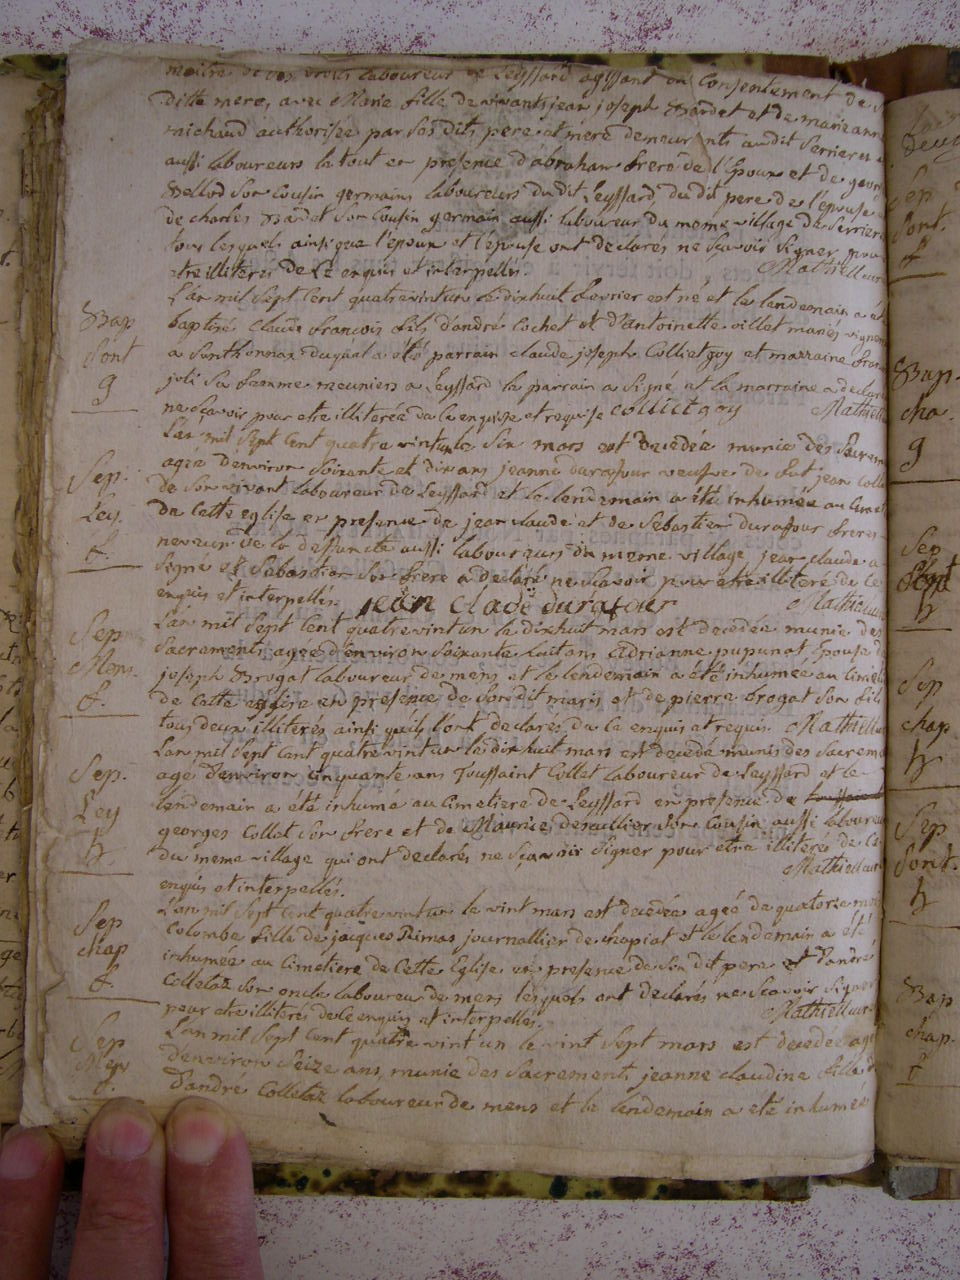 maitre de ses droits laboureur de Leyssard agissant du Consentement de
ditte mere, avec Marie fille de vivants jean joseph Bardet et de marie anne
michaud authorisée par ses dits pere et mere demeurants audit Serrieres
aussi laboureurs le tout en presence d'abraham frere de l'Epoux et de
Son Cousin germains laboureurs du dit Leyssard, du dit pere de l'epouse
de charles Bardet Son Cousin germain aussi laboureur du meme village de Serrieres
tous lesquels ainsi que l'epoux et l'epouse ont declarés ne Scavoir Signer pour
etre illiterés de Ce enquis et interpellés. Mathieu
L'an mil Sept Cent quatrevint un le dixhuit fevrier est né et le lendemain a été
Bap baptisé Claude francois fils d'andré Cochet et d'Antoinette villet mariés
Sont a Sonthonnax duquel a été parrain claude joseph Collietgoy et marraine
g joli Sa femme meuniers a Leyssard le parrain a Signé et la marraine a declaré
ne Scavoir pour etre illiterée de Ce enquise et requise Collietgoy Mathieu
L'an mil Sept Cent quatre vint un le Six mars est decedée munie des Sacrem
Sep. agée d'environ Soixante et dix ans jeanne durafour veufve de feut jean
de Son vivant laboureur de Leyssard et le lendemain a été inhumée au
Ley. de Cette eglise en presence de jean claude et de Sebastien durafour freres
f. neveux de la deffuncte aussi laboureurs du meme village jean claude a
Signé et Sebastien Son frere a declaré ne Scavoir pour etre illiteré de Ce
enquis et interpellés jean clade durafour Mathieu
Sep L'an mil Sept Cent quatrevint un le dixhuit mars est decedée munie des
Sacrements agée d'environ Soixante huit ans Adrianne pupunat Epouse de
Mens. joseph Brogat laboureur de mens et le lendemain a été inhumée au
f. de Cette eglise en presence de Son dit maris et de pierre brogat Son fils
tous deux illiterés ainsi qu'ils l'ont declarés de Ce enquis et requis. Mathieu
L'an mil Sept Cent quatrevint un le dixhuit mars est decedé munis des Sacrem
Sep. agé d'environ cinquante ans Toussaint Collet laboureur de Leyssard et le
Ley lendemain a été inhumé au Cimetiere de Leyssard en presence de
georges Collet Son frere et de Maurice Son Cousin aussi laboureu
h. du meme village qui ont declarés ne Scavoir Signer pour etre illiterés de Ce
enquis et interpellés. Mathieu
L'an mil Sept Cent quatrevint un le vint mars est decedée agée de quatorze
Sep Colombe fille de jacques Rimas journallier de chapiat et le lendemain a été
chap inhumée au Cimetiere de Cette Eglise en presence de Son dit pere et d'andré
f. Colletaz Son oncle laboureur de mens lesquels ont declarés ne Scavoir Signer
pour etre illiterés de Ce enquis et interpellés. Mathieu
Sep L'an mil Sept Cent quatre vint un le vint Sept mars est decedée agée
Men d'environ Seize ans, munie des Sacrements jeanne claudine fille
f. d'andré Colletaz laboureur de mens et le lendemain a été inhumée
Sep
Sont.
f
Bap.
cha.
g
Sep
h
Sep
chap
h
Sep
Sont.
h
Bap
chap.
f